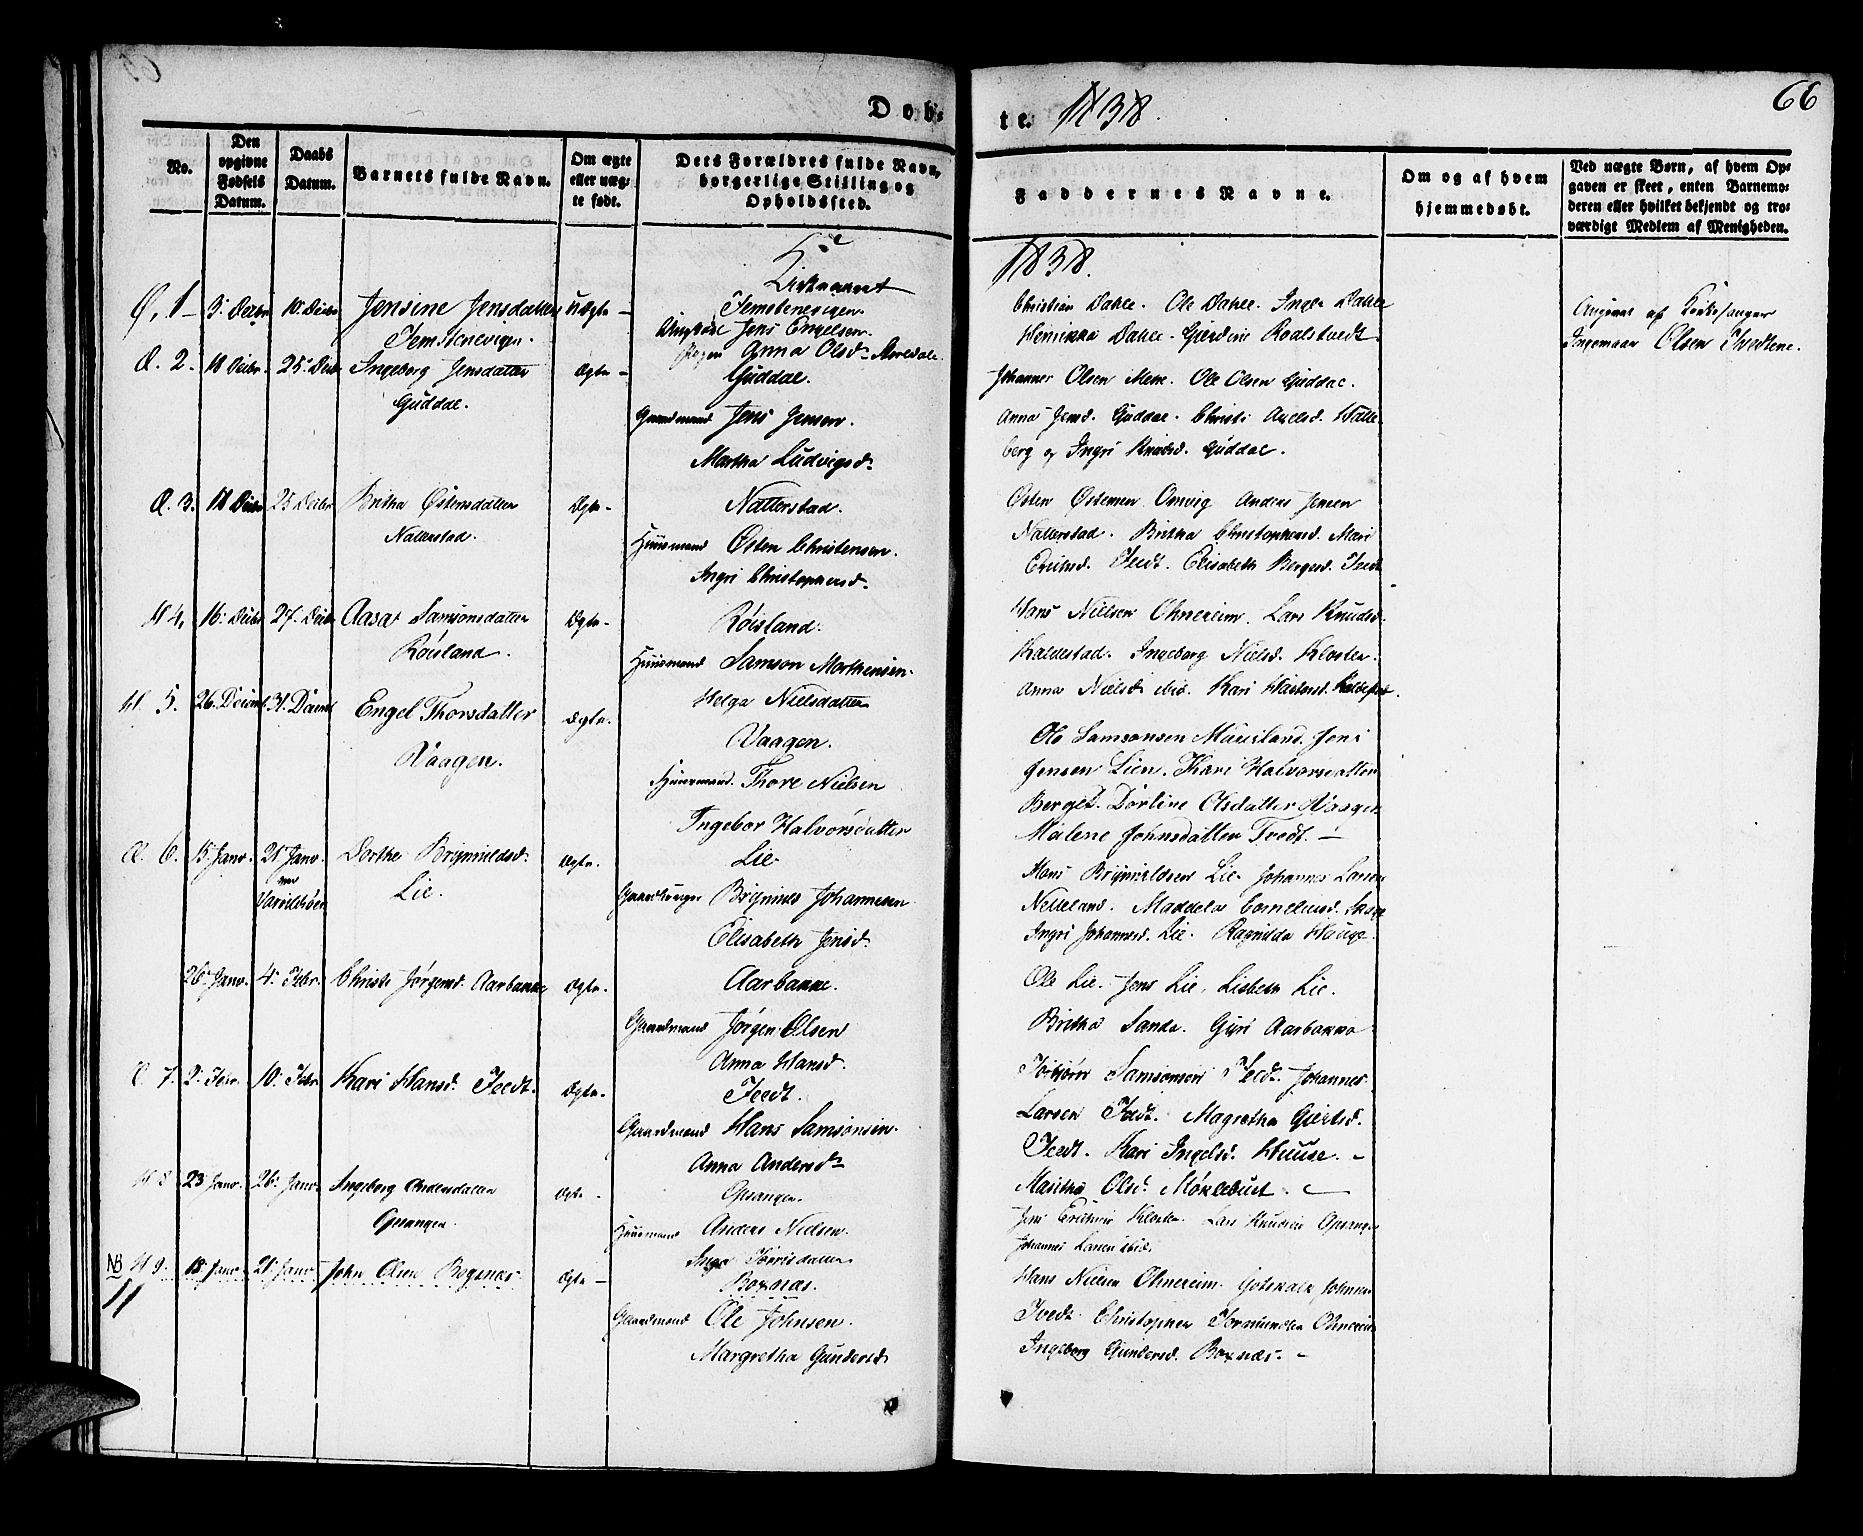 66
Døb-
te. 1838.
No.
Den opgivne Fødsels Datum.
Daabs Datum.
Barnets fulde Navn.
Om ægte eller uægte født.
Dets Forældres fulde Navn, borgerlige Stilling og Opholdssted.
Faddernes Navne.
Om og af hvem hjemmedøbt.
Ved uægte Børn, af hvem Opgaven er skeet, enten Barnemoderen eller hvilket bekjendt og troværdigt Medlem af Menigheden.
1838.
1 3. Decbr 10. Decbr Jensine Jensdatter Uægte - Femstenevigen
Femstenevigen. Ungkarl Jens Engelsen.
Pigen Anna Olsd.
Christian Dahle. Ole Dahle. Inger Dahle
Henrikka Dahle.
Angivet af Kirkesanger
Ingemaar Olsen Tvedtene.
2. 18 Decbr. 25. Decbr Ingeborg Jensdatter Ægte - Guddal.
Guddal.
Gaardmand Jens Jensen.
Martha Ludvigsd.
Johannes Olsen Mehe. Ole Olsen Guddal.
Anna Jensd. Guddal. Christi Axelsd. Halle-
berg og Ingri Knudsd. Guddal.
3. 18 Decbr 25 Decbr Britha Østensdatter Ægte - Natterstad.
Natterstad.
Huusmand Østen Christensen.
Ingri Christophersd.
Østen Østensen Omvig Anders Jensen
Natterstad. Britha Christophersd. Mari
Eriksd. Tvedt. Elisabeth Bergesd. Tvedt
4. 16. Decbr 27. Decbr Aasa Samsonsdatter Ægte - Røisland.
Røisland.
Huusmand Samson Morthensen.
Helga Nielsdatter
Hans Nielsen Ohnereim. Lars Knudsd.
Haldestad. Ingeborg Nielsd. Kloster.
Anna Nielsd. ibid. Kari
5. 26. 31. Engel Thorsdatter Ægte. Vaagen.
Vaagen.
Huusmand. Thore Nielsen
Ingebor Halvorsdatter
Ole Samsonsen Mausland. Jens
Jensen Lien. Kari Halvorsdatter
Berget. Dorline Olsdatter Vaagen
Malene Johnsdatter Tvedt. -
6. 15 Janv. 21 Janv. Dorthe Brynnildsd. Ægte. Lie.
Lie.
Brynnild Johannesen
Elisabeth Jensd.
Mons Brynnildsen Lie. Johannes Larsen
Netteland. Maddela Corneliusd. Skage
Ingri Johannesd. Lie. Ragnilda Hauge.
26. Janv. 4. Febr. Christi Jørgensd. Aarbakke Ægte. Aarbakke.
Gaardmand Jørgen Olsen
Anna Hansd.
Ole Lie. Jens Lie. Lisbeth Lie.
Britha Sande. Guri Aarbakke
7. 2. Febr. 10. Febr. Kari Hansd. Tvedt. Ægte. Tvedt.
Gaardmand Hans Samsonsen.
Anna Andersd.
Torbjørn Samsonsen Tvedt. Johannes
Larsen Tvedt. Magretha Giertsd.
Tvedt. Kari Ingelsd. Huuse. -
Maritha Olsd. Møklebust.
8 23 Janv. 26. Janv. Ingeborg Andersdatter Ægte - Opsangen.
Opsangen.
Huusmand Anders Nielsen.
Inger Torrisdatter
Jens Erichsen Kloster. Lars Knudsen Opsanger
Johannes Larsen ibid.
NB 9. 18. Janv. 21. Janv. John Olsen Bogsnæs. Ægte - Boxnæs.
11
Gaardmand Ole Johnsen.
Margretha Gundersd.
Hans Nielsen Ohnereim. Gotskalk Johnsen
Tvedt. Christopher Ohnereim
Ingeborg Gundersd. Boxnæs. -